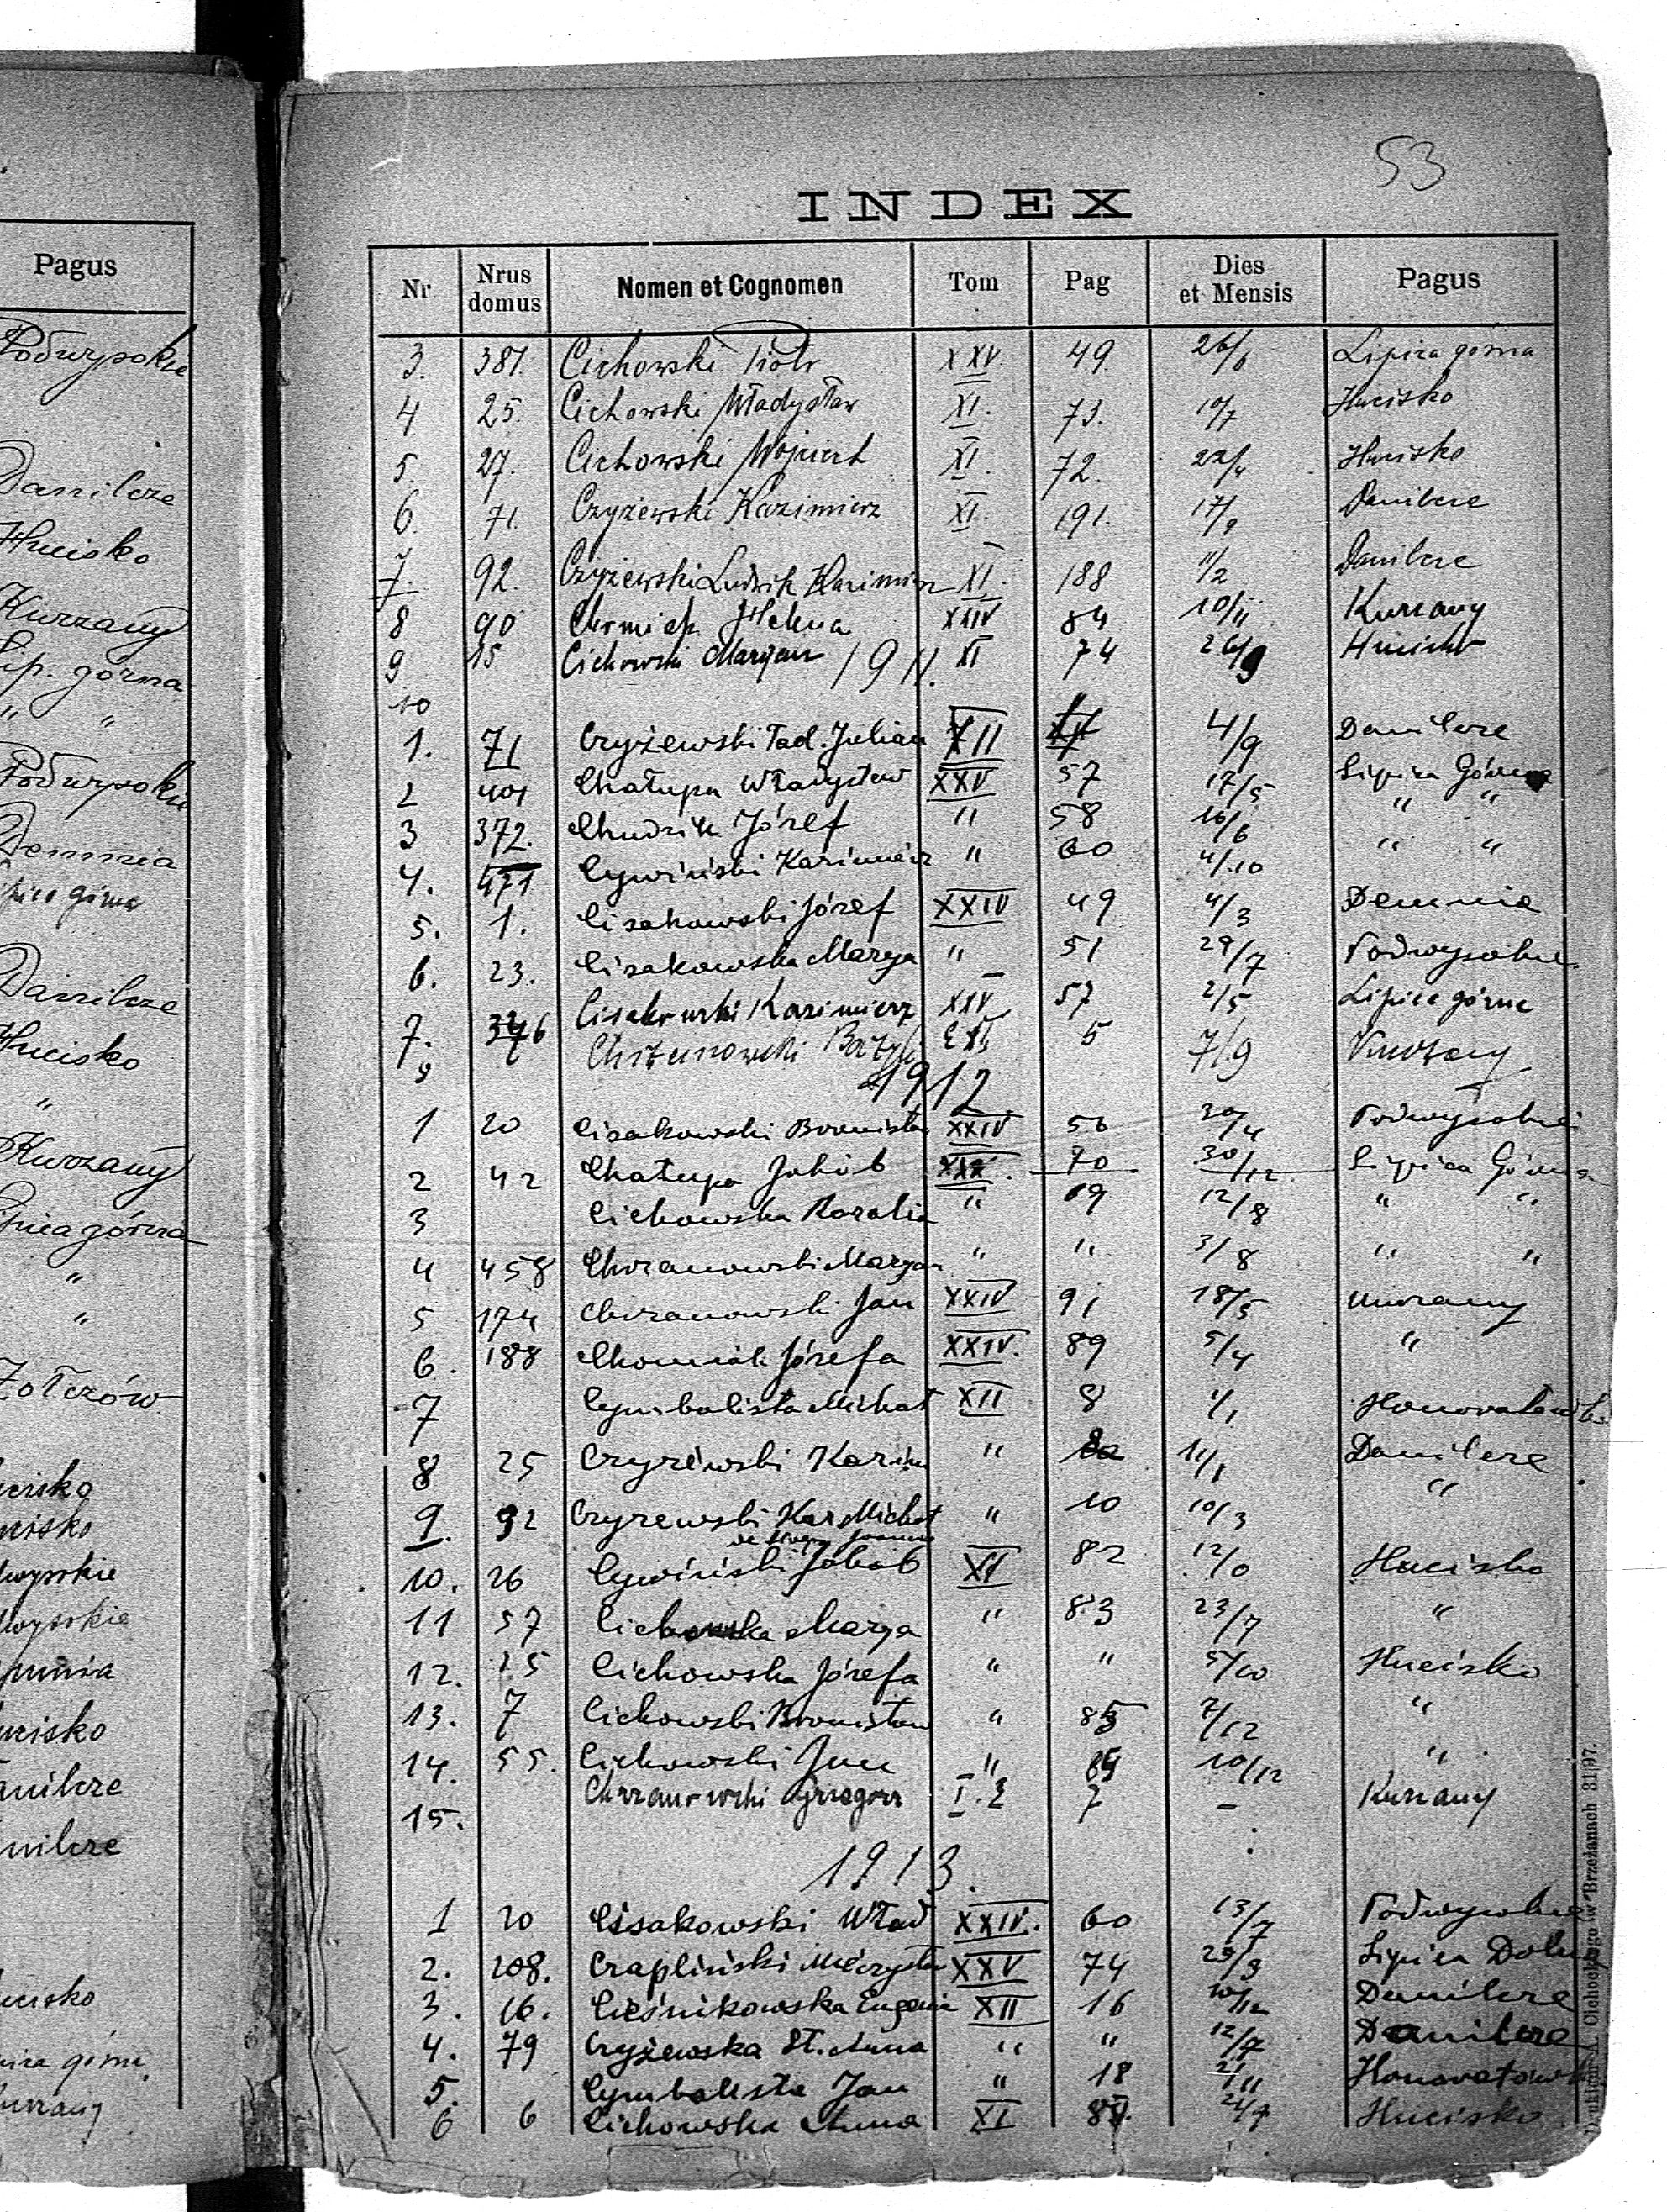 Pagus
Podwysokie
Danilcze
Hucisko
Kurzany
Lip. górna
" "
Podwysokie
Demnia
Lipica górna
Danilcze
Hucisko
"
Kurzany
Lipica górna
"
"
Żołczów
53
INDEX
Nr Nrus domus Nomen et Cognomen Tom Pag Dies et Mensis Pagus
3. 381. Cichowski Piotr XXV. 49. 26/6 Lipica górna
4 25. Cichowski Władysław XI. 73. 10/7 Hucisko
5. 27. Cichowski Wojciech XI. 72. 22/4 Hucisko
6. 71. Czyżewski Kazimierz XI. 191. 17/9 Danilcze
7. 92. Czyżewski Ludwik Kazimierz XI. 188 11/2 Danilcze
8 90 Helena XXIV 84 10/11 Kurzany
9 15 Cichowski Maryan XI 74 26/9 Hucisko
1911.
10
1. 71 Czyżewski Tad. Julian XII 4/9 Danilcze
2 401 Chałupa Władysław XXV 57 17/5 Lipica Górna
3 372. Chudzik Józef " 58 16/6 " "
4. 471 Cywiński Kazimierz " 60 4/10 " "
5. 1. Cisakowski Józef XXIV 49 4/3 Demnia
6. 23. Cisakowska Marya " 51 29/7 Podwysokie
7. Cisakowski Kazimierz XXV 57 2/5 Lipica górna
9 Chrzanowski Bazyli 5 7/9 Kurzany
1912
1 20 Cisakowski Bronisław XXIV 56 30/4 Podwysokie
2 42 Chałupa Jakób XXV. 70 30/12 Lipica Górna
3 Cichowska Rozalia " 69 12/8 " "
4 458 Chrzanowski Maryan " " 3/8 " "
5 174 Chrzanowski Jan XXIV 91 18/5 Kurzany
6. 188 Chomiak Józefa XXIV. 89 5/4 "
7 Cymbalista Michał XII 8 1/1 Honoratówka
8 25 Czyżewski Kazim " 11/1 Danilcze
9. 92 Czyżewski Kaz Michał " 10 10/3 "
10. 26 Cywiński Jakób XI 82 Hucisko
11 57 Cichowska Marya " 83 23/7 "
12. 25 Cichowska Józefa " " 5/10 Hucisko
13. 7 Cichowski Bronisław " 85 7/12 "
14. 55. Cichowski Jan " 10/12 "
15. Chrzanowski Grzegorz 7 - Kurzany
1913.
1 20 Cisakowski Wład XXIV. 60 13/7 Podwysokie
2. 208. Czapliński Mieczysław XXV 74 29/3 Lipica Dolna
3. 16. Cieśnikowska Eugenia XII 16 Danilcze
4. 79 Czyżewska St. Anna " " 12/7 Danilcze
5. Cymbalista Jan " 18 Honoratówka
6 6 Cichowska Anna XI 24/7 Hucisko
Brzeżanach 81/97.